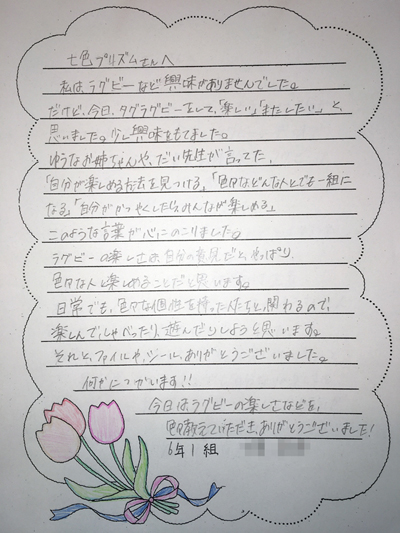 七色プリズムさんへ
私は、ラグビーなど興味がありませんでした。
だけど、今日、タグラグビーをして、「楽しい」「またしたい。」と、
思いました。少し興味をもてました。
ゆうなお姉ちゃんや、だい先生が言ってた、
「自分が楽しめる方法を見つける」「色々などんな人とでも一組に
なる」「自分がかつやくしたらみんなが楽しめる」
このような言葉が心にのこりました。
ラグビーの楽しさは、自分の意見だと、やっぱり
色々な人と楽しめることだと思います。
日常でも、色々な個性を持った人たちと、関わるので、
楽しんで、しゃべったり、遊んだりしようと思います。
それと、ファイルや、シール、ありがとうございました。
何かにつかいます!!
今日は、ラグビーの楽しさなどを、
色々教えていただき、ありがとうございました!
6年1組